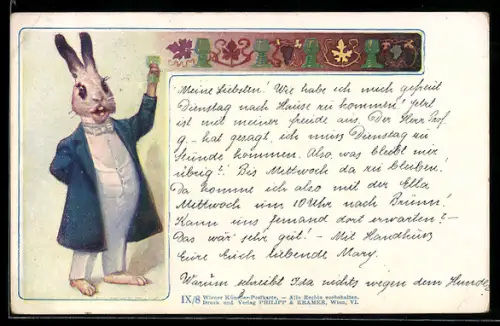 Meine Liebsten! Wie habe ich mich gefreut
Dienstag nach Hause zu kommen! Jetzt
ist mit meiner freude aus. Der Herr Prof.
g. – hat gesagt, ich muss Dienstag zu
Stunde kommen. Also, was bleibt mir
übrig?! Bis Mittwoch da zu bleiben!
Da komme ich also mit der Ella
Mittwoch um 10 Uhr nach Brünn!
Kann uns jemand dort erwarten? –
Das wär' sehr gut! – Mit Handkuss
Eure Euch liebende Mary.
Warum schreibt Ida nichts wegen dem Hunde
IX/8 Wiener Künstler-Postkarte. – Alle Rechte vorbehalten.
Druck und Verlag PHILIPP & KRAMER, Wien, VI.